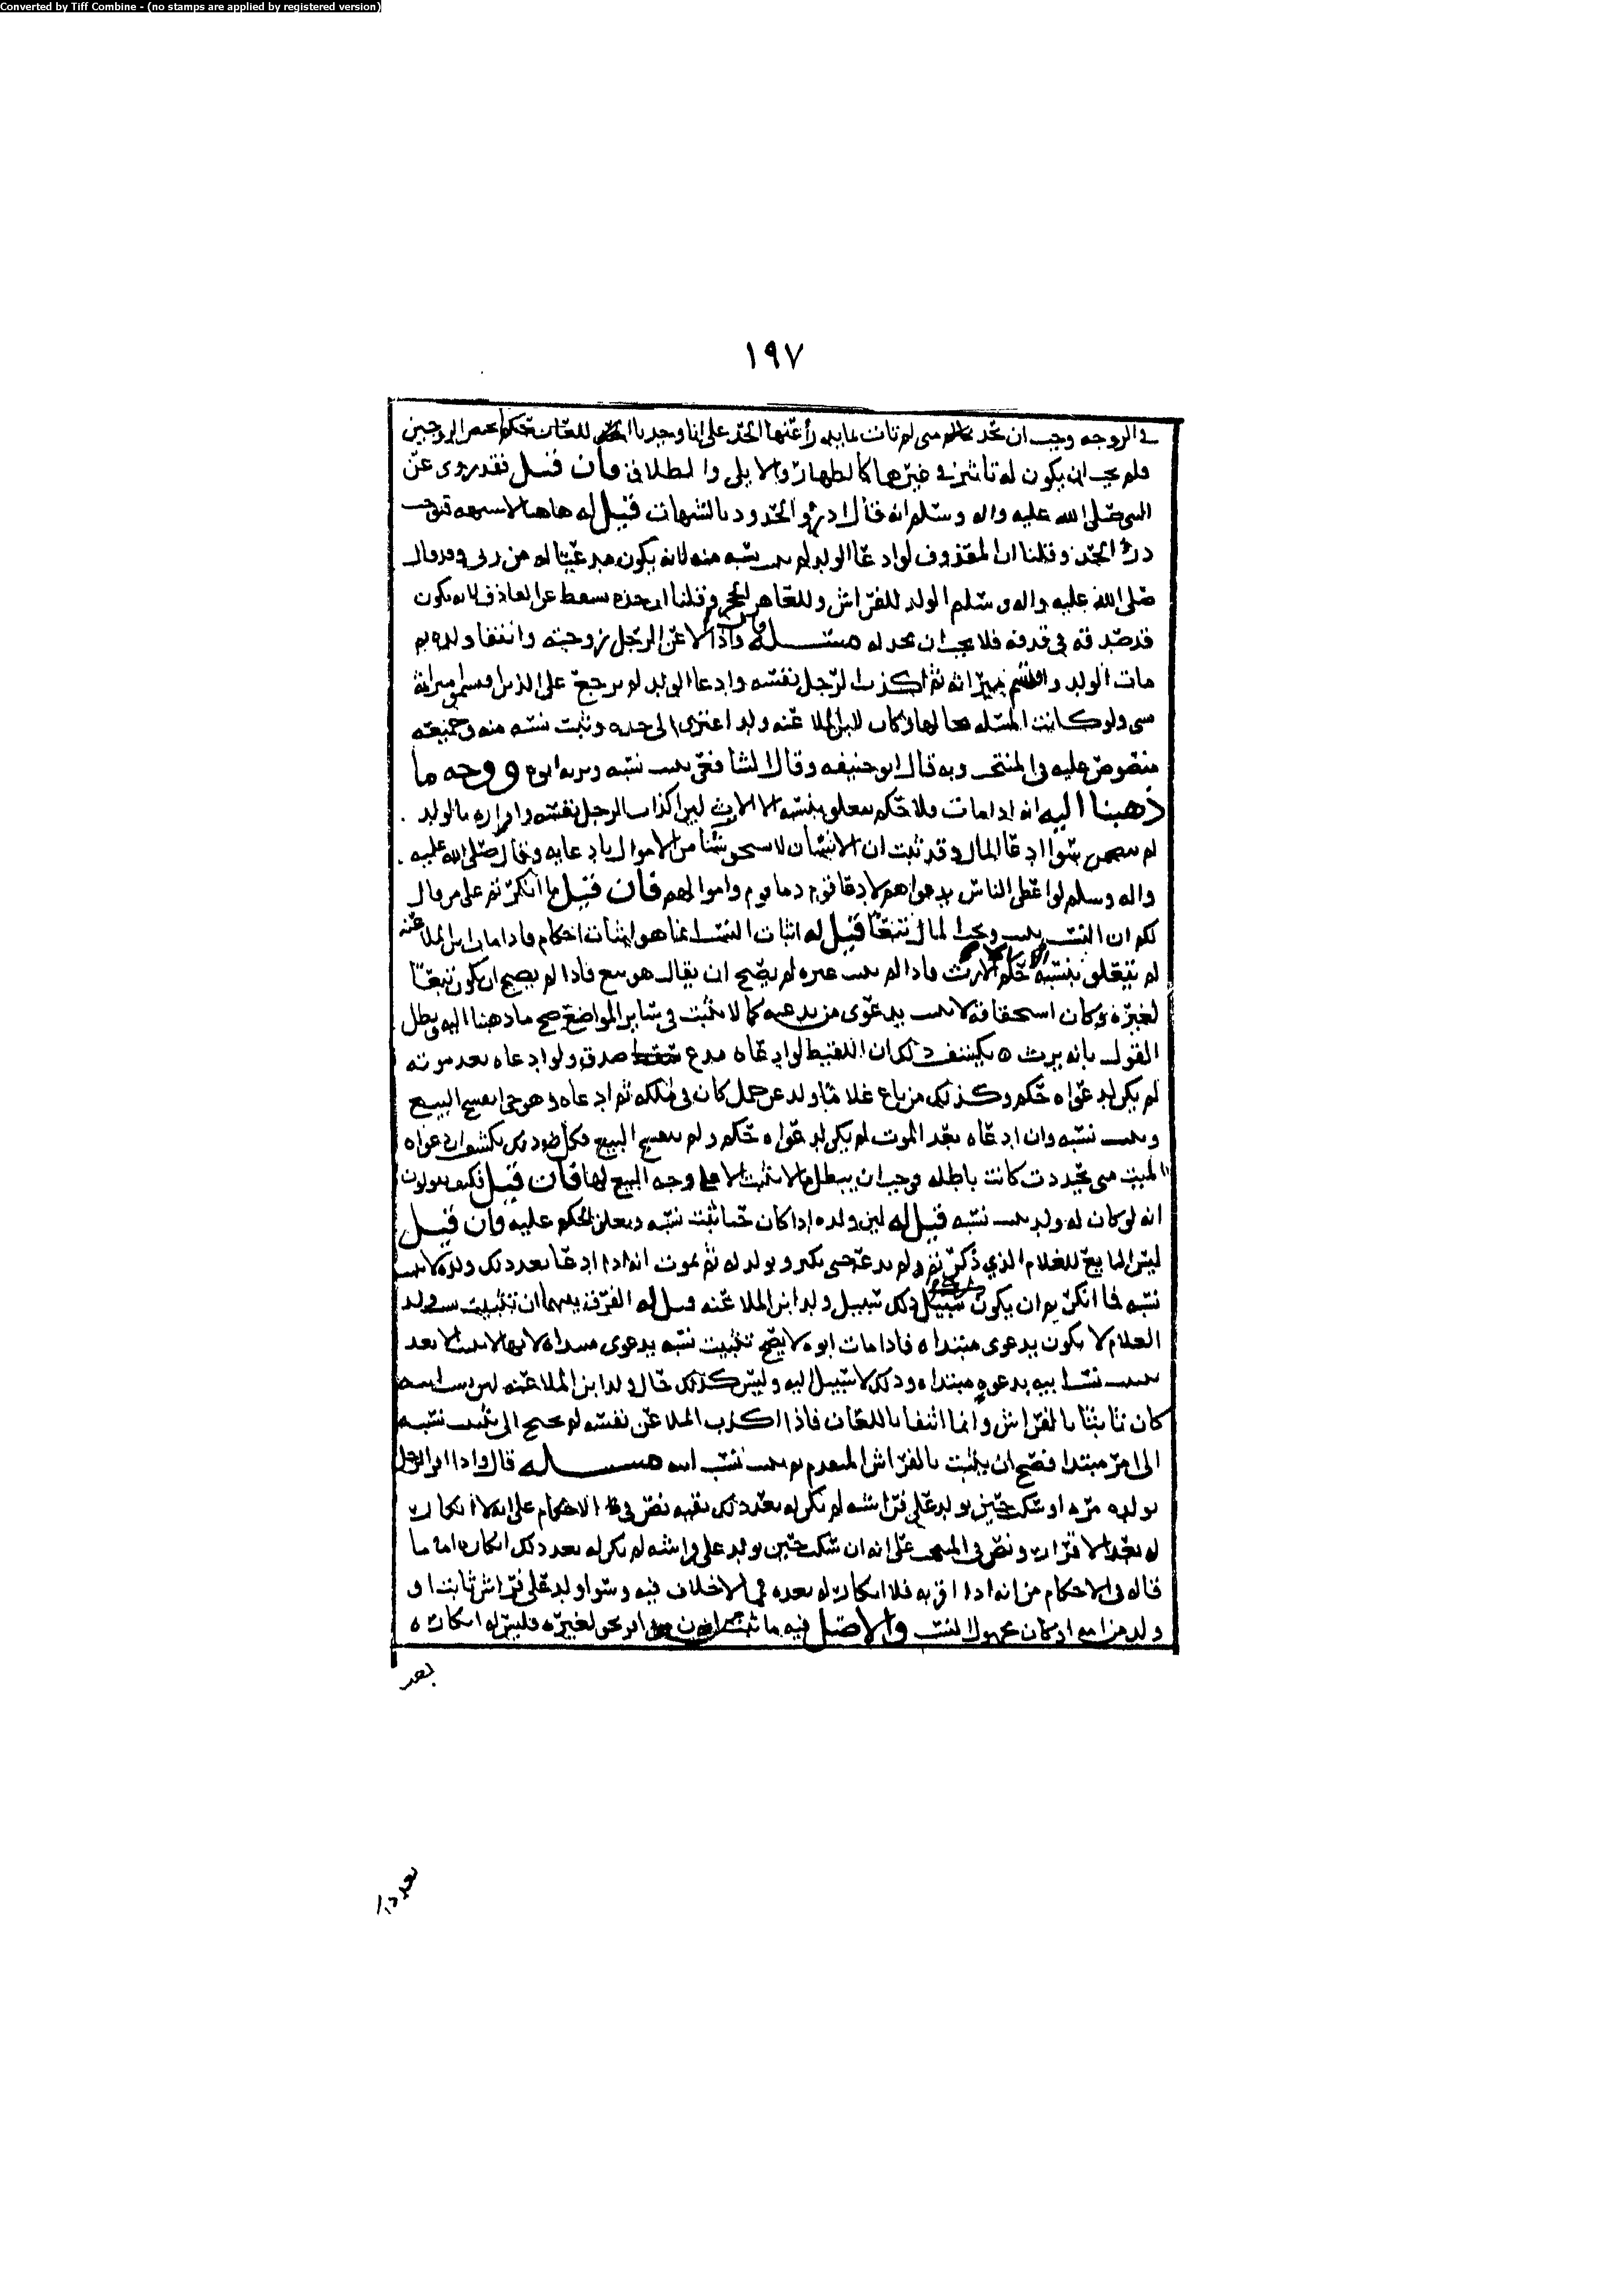 Converted by Tiff Combine - (no stamps are applied by registered version)
١٩٧
في الزوجه وجب ان يحد متى لم تات بما يدرأ عنها الحد على انا وجدنا اللعان حكم يخص الزوجين
فلم يجب ان يكون له تاثير في غيرها كالظهار والايلى والطلاق فان قيل فقد روى عن
النبي صلى الله عليه واله وسلم انه قال ادرؤ الحدود بالشبهات قيل له هاهنا لا شبهه توجب
درؤ الحد وقلنا ان المقذوف لو ادعا الولد لم يثبت نسبه منه لانه يكون مدعيا له من زنى وقد قال
صلى الله عليه واله وسلم الولد للفراش وللعاهر الحجر وقلنا ان حده سقط عن القاذف لانه يكون
قد صدقه في قذفه فلا يجب ان يحد له مسئلة قال واذا لاعن الرجل زوجته وانتفا ولده ثم
مات الولد واقتسم ميراثه ثم اكذب الرجل نفسه وادعا الولد لم يرجع على الذين اقتسموا ميراثه
بشي ولو كانت المسئله بحالها وكان لابن الملاعنه ولد اعتزى الى جده وثبت نسبه منه وجميعه
منصوص عليه في المنتخب وبه قال ابو حنيفه وقال الشافعي يثبت نسبه ويرثه ابوه ووجه ما
ذهبنا اليه انه اذا مات فلا حكم يتعلق بنسبه الا الارث ليس اكذاب الرجل نفسه واقراره بالولد
لم يتضمن سوا ادعا المال وقد ثبت ان الانسان لا يستحق شيئا من الاموال بادعايه وقال صلى الله عليه
واله وسلم لو اعطى الناس بدعواهم لادعا قوم دما قوم واموالهم فان قيل ما انكرتم على من قال
لكم ان النسب يثبت ويجب المال تبعا قيل له اثبات النسب انما هو اثبات احكام فاذا مات ابن الملاعنه
لم يتعلق بنسبه حكم الا الارث فاذا لم يثبت غيره لم يصح ان يقال هو تبع فاذا لم يصح ان يكون تبعا
لغيره وكان استحقاقه لا يثبت بدعوى من يدعيه كما لا يثبت في ساير المواضع صح ما ذهبنا اليه وبطل
القول بانه يرث ه يكشف ذلك ان اللقيط لو ادعاه مدع صدق ولو ادعاه بعد موته
لم يكن لدعواه حكم وكذلك من باع غلاما ولد عن حمل كان في ملكه ثم ادعاه وهو حي انفسخ البيع
ويثبت نسبه وان ادعاه بعد الموت لم يكن لدعواه حكم ولم ينفسخ البيع فكل ذلك يكشف ان دعواه
الميت متى تجددت كانت باطله فوجب ان يبطل ما لا يثبت الا على وجه التبع لها فان قيل فكيف تقولون
انه لو كان له ولد يثبت نسبه قيل له لين ولده اذا كان حيا ثبت نسبه وتعلق الحكم عليه فان قيل
ليس البايع للغلام الذي ذكرتم ولم يدعه حتى يكبر ويولد له ثم يموت انه اذا ادعا بعد ذلك ولده لا يثبت
نسبه فما انكرتم ان يكون سبيل ذلك سبيل ولد ابن الملاعنه قيل له الفرق بينهما ان تثبيت نسب ولد
الغلام لا يكون بدعوى مبتداه فاذا مات ابوه لا يصح تثبيت نسبه بدعوى مبتداه لانها لا تثبت الا بعد
تثبيت نسب ابيه بدعوه مبتداه وذلك لا سبيل اليه وليس كذلك حال ولد ابن الملاعنه لين نسب ابيه
كان ثابتا بالفراش وانما انتفا باللعان فاذا اكذب الملاعن نفسه لم يحتج الى تثبيت نسبه
الى امر مبتدا فصح ان يثبت بالفراش المتقدم ثم يثبت نسب ابنه مسئلة قال واذا اقر الرجل
بولده مره او سكت حين يولد على فراشه لم يكن له بعد ذلك نفيه نص في الاحكام على انه لا انكار
له بعد الاقرار ونص في المنتخب على انه ان سكت حين يولد على فراشه لم يكن له بعد ذلك انكاره اما ما
قاله في الاحكام من انه اذا اقر به فلا انكار له بعده فمما لا خلاف فيه وسوا ولد على فراش ثابت او
ولد من امه او كان مجهول النسب والاصل فيه ما ثبت ان من اقر بحق لغيره فليس له انكاره
بعد